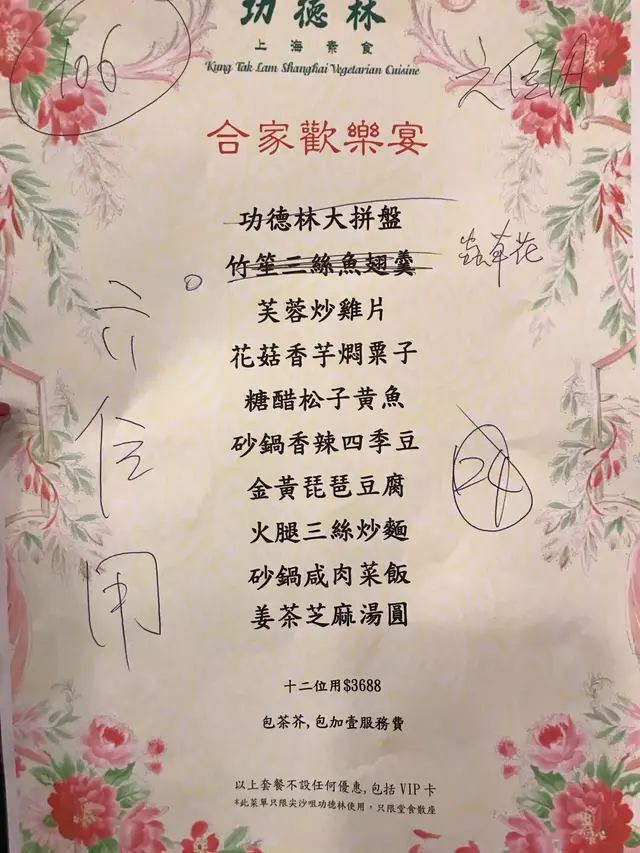 功德林
上海素食
Kung Tak Lam Shanghai Vegetarian Cuisine
106
六位用
合家歡樂宴
功德林大拼盤
竹笙三絲魚翅羹
蟲草花
芙蓉炒雞片
花菇香芋燜粟子
糖醋松子黃魚
砂鍋香辣四季豆
金黃琵琶豆腐
24
火腿三絲炒麵
砂鍋咸肉菜飯
姜茶芝麻湯圓
六位用
十二位用$3688
包茶芥,包加壹服務費
以上套餐不設任何優惠,包括 VIP 卡
*此菜單只限尖沙咀功德林使用，只限堂食散座